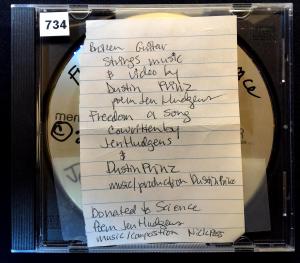 734
Broken Guitar
Strings music
& video by
Dustin Prinz
poem Jen Hudgens
Freedom a Song
Cowritten by
Jen Hudgens
&
Dustin Prinz
music/production Dustin Prinz
Donated to Science
Poem Jen Hudgens
music/composition Nick